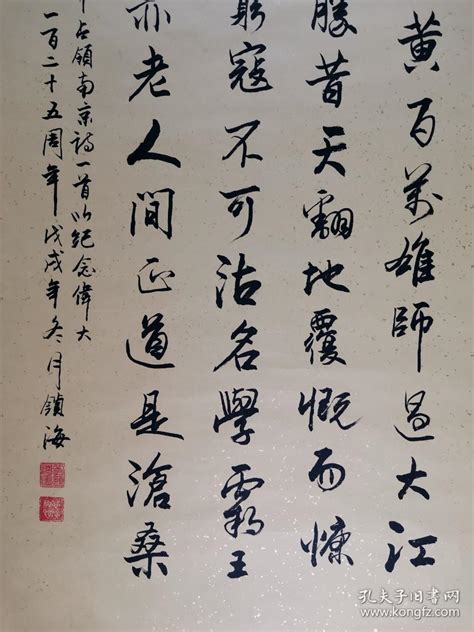 黄百萬雄師過大江
勝昔天翻地覆慨而慷
窮寇不可沽名學霸王
亦老人間正道是滄桑
占領南京詩一首以紀念偉大
一百二十五周年戊戌年冬月領海
孔夫子旧书网
www.kongfz.com